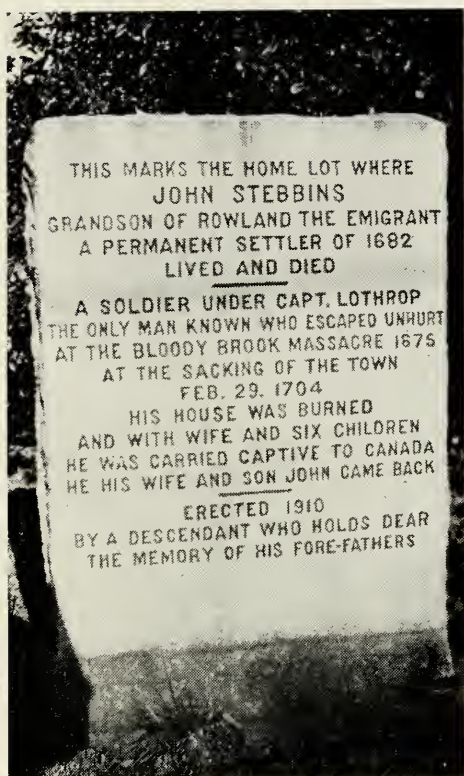 THIS MARKS THE HOME LOT WHERE
JOHN STEBBINS
GRANDSON OF ROWLAND THE EMIGRANT
A PERMANENT SETTLER OF 1682
LIVED AND DIED
A SOLDIER UNDER CAPT. LOTHROP
THE ONLY MAN KNOWN WHO ESCAPED UNHURT
AT THE BLOODY BROOK MASSACRE 1675
AT THE SACKING OF THE TOWN
FEB. 29. 1704
HIS HOUSE WAS BURNED
AND WITH WIFE AND SIX CHILDREN
HE WAS CARRIED CAPTIVE TO CANADA
HE HIS WIFE AND SON JOHN CAME BACK
ERECTED 1910
BY A DESCENDANT WHO HOLDS DEAR
THE MEMORY OF HIS FORE-FATHERS